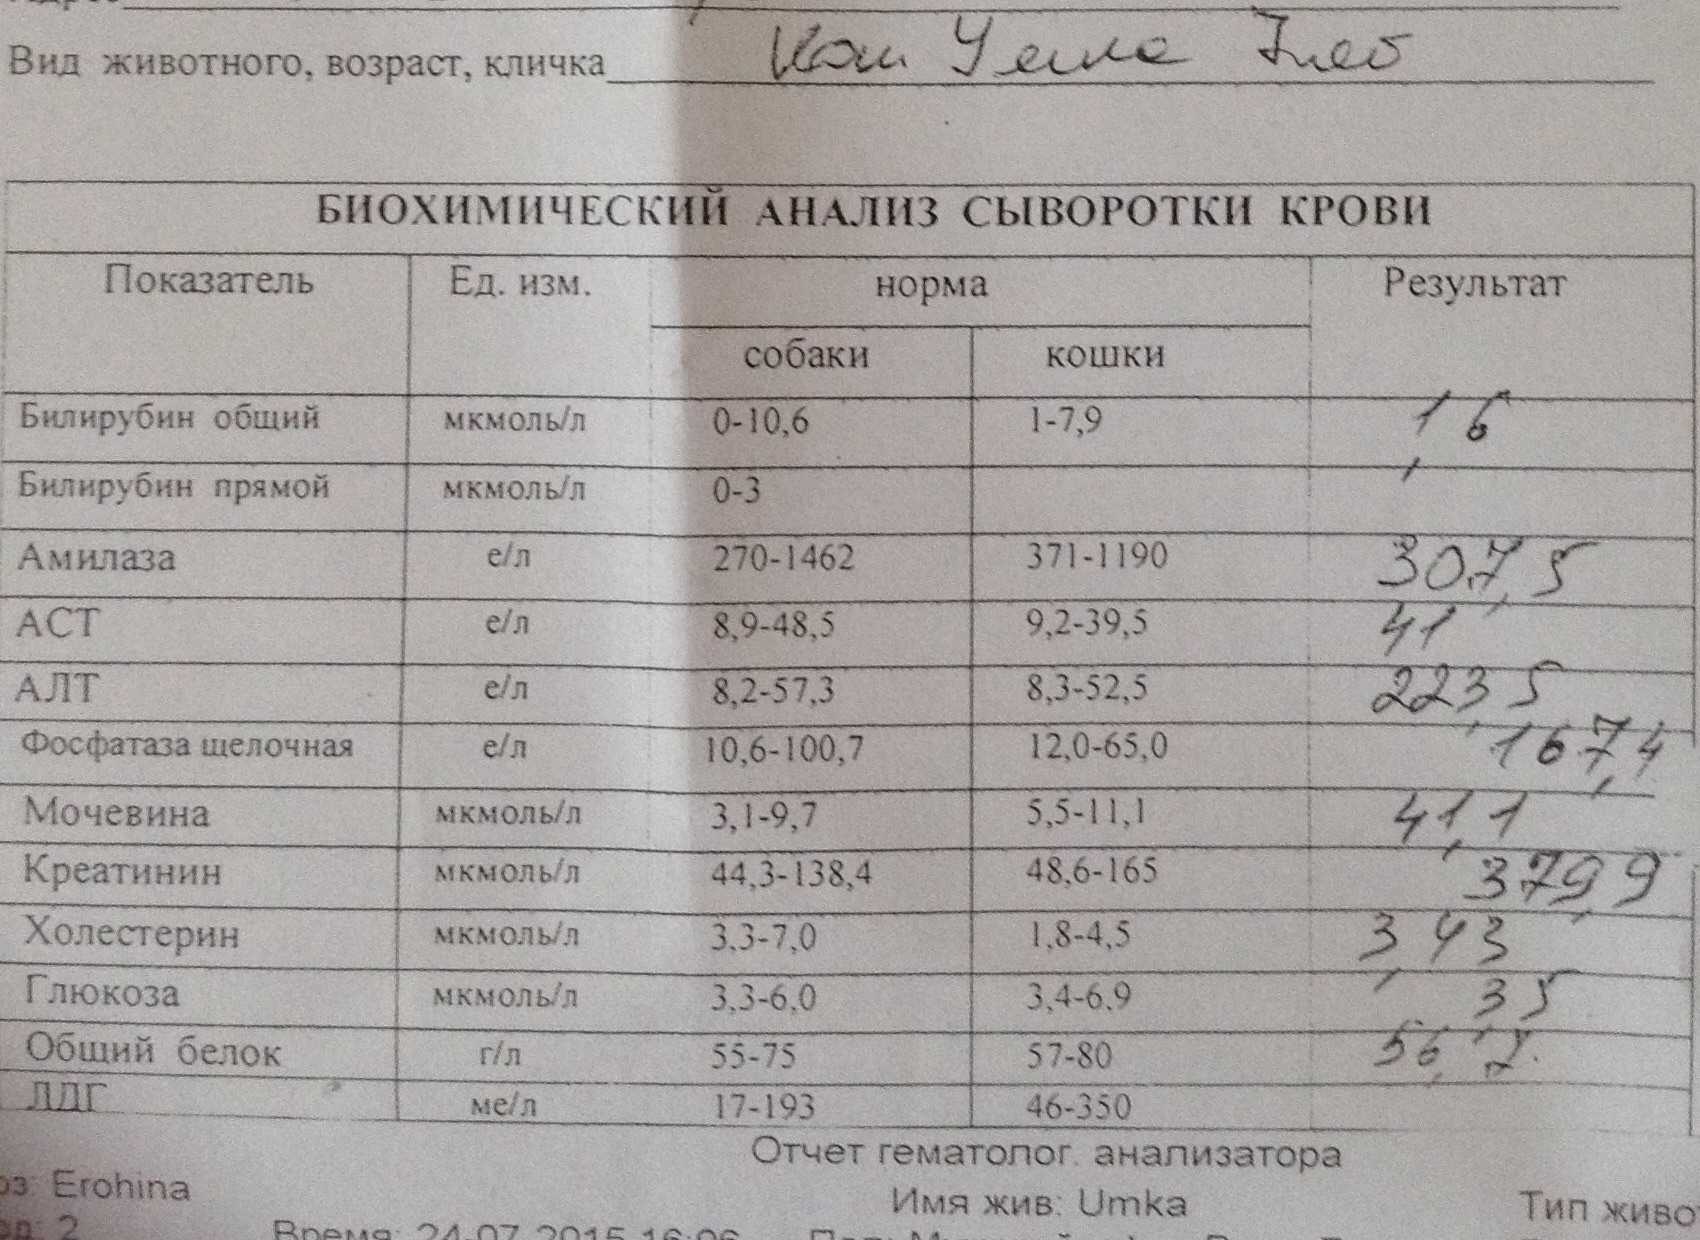 Вид животного, возраст, кличка Кот Умка 7лет
БИОХИМИЧЕСКИЙ АНАЛИЗ СЫВОРОТКИ КРОВИ
Показатель Ед. изм. норма Результат
собаки кошки
Билирубин общий мкмоль/л 0-10,6 1-7,9 1,6
Билирубин прямой мкмоль/л 0-3
Амилаза е/л 270-1462 371-1190 307,5
АСТ е/л 8,9-48,5 9,2-39,5 41
АЛТ е/л 8,2-57,3 8,3-52,5 223,5
Фосфатаза щелочная е/л 10,6-100,7 12,0-65,0 167,4
Мочевина мкмоль/л 3,1-9,7 5,5-11,1 41,1
Креатинин мкмоль/л 44,3-138,4 48,6-165 379,9
Холестерин мкмоль/л 3,3-7,0 1,8-4,5 3,43
Глюкоза мкмоль/л 3,3-6,0 3,4-6,9 3,5
Общий белок г/л 55-75 57-80 56,2
ЛДГ ме/л 17-193 46-350
Отчет гематолог. анализатора
Erohina Имя жив: Umka Тип
2 Время: 24.07.2015 16:06